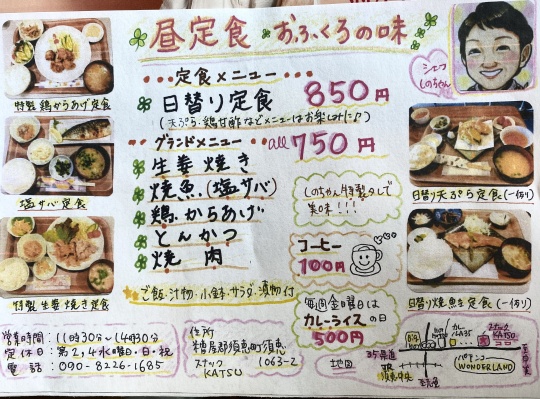 昼定食 おふくろの味
シェフ
しのちゃん
定食メニュー
日替り定食 850円
(天ぷら・鶏甘酢などメニューはお楽しみに♪)
グランドメニュー all 750円
生姜焼き
焼魚(塩サバ)
鶏からあげ
とんかつ
焼肉
しのちゃん特製タレで
美味!!!
コーヒー
100円
ご飯・汁物・小鉢・サラダ・漬物付
毎週金曜日は
カレーライスの日
500円
特製 鶏からあげ定食
塩サバ定食
特製 生姜焼き定食
日替り天ぷら定食(一例)
日替り焼魚定食(一例)
営業時間:11時30分〜14時30分
定休日:第2,4水曜日・日・祝
電話:090-8226-1685
住所
糟屋郡須恵町須恵
1063-2
スナック
KATSU
地図
35県道
須恵中央
スナック
KATSU
パチンコ
WONDERLAND